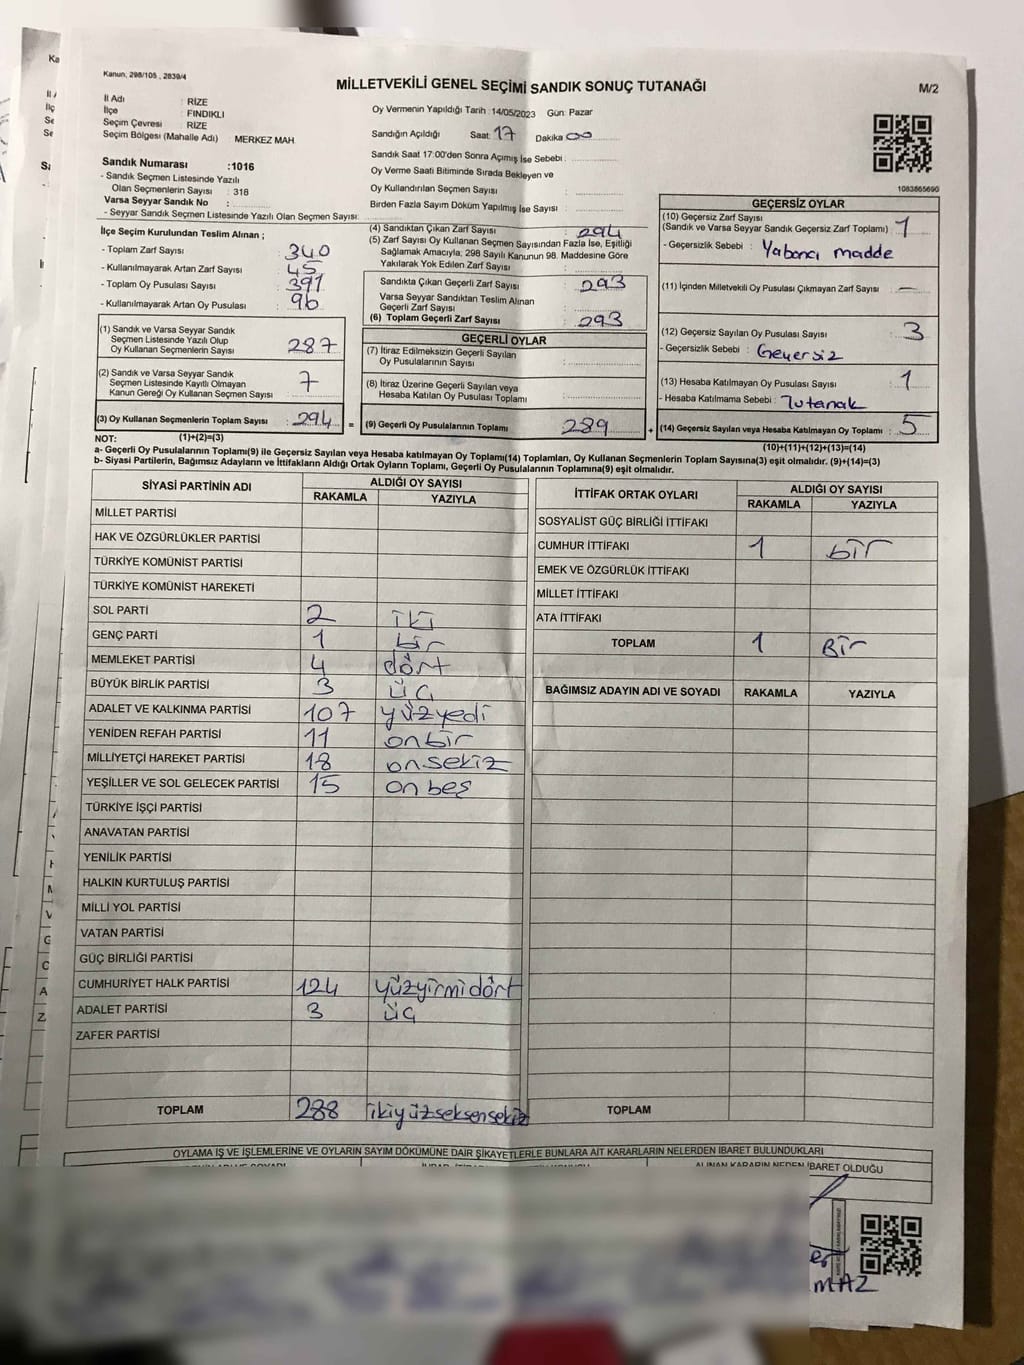 Kanun, 298/105 , 2839/4
MİLLETVEKİLİ GENEL SEÇİMİ SANDIK SONUÇ TUTANAĞI
M/2
İl Adı : RİZE
İlçe : FINDIKLI
Seçim Çevresi : RİZE
Seçim Bölgesi (Mahalle Adı) : MERKEZ MAH.
Oy Vermenin Yapıldığı Tarih : 14/05/2023 Gün: Pazar
Sandığın Açıldığı Saat: 17 Dakika 00
Sandık Saat 17:00'den Sonra Açımış İse Sebebi :
Oy Verme Saati Bitiminde Sırada Bekleyen ve
Oy Kullandırılan Seçmen Sayısı :
Birden Fazla Sayım Döküm Yapılmış İse Sayısı :
1083865690
Sandık Numarası :1016
- Sandık Seçmen Listesinde Yazılı
Olan Seçmenlerin Sayısı : 316
Varsa Seyyar Sandık No :
- Seyyar Sandık Seçmen Listesinde Yazılı Olan Seçmen Sayısı:
İlçe Seçim Kurulundan Teslim Alınan ;
- Toplam Zarf Sayısı : 340
- Kullanılmayarak Artan Zarf Sayısı : 45
- Toplam Oy Pusulası Sayısı : 391
- Kullanılmayarak Artan Oy Pusulası : 96
(1) Sandık ve Varsa Seyyar Sandık
Seçmen Listesinde Yazılı Olup
Oy Kullanan Seçmenlerin Sayısı : 287
(2) Sandık ve Varsa Seyyar Sandık
Seçmen Listesinde Kayıtlı Olmayan
Kanun Gereği Oy Kullanan Seçmen Sayısı : 7
(3) Oy Kullanan Seçmenlerin Toplam Sayısı : 294 =
(4) Sandıktan Çıkan Zarf Sayısı : 294
(5) Zarf Sayısı Oy Kullanan Seçmen Sayısından Fazla İse, Eşitliği
Sağlamak Amacıyla, 298 Sayılı Kanunun 98. Maddesine Göre
Yakılarak Yok Edilen Zarf Sayısı :
Sandıkta Çıkan Geçerli Zarf Sayısı : 293
Varsa Seyyar Sandıktan Teslim Alınan
Geçerli Zarf Sayısı :
(6) Toplam Geçerli Zarf Sayısı : 293
GEÇERLİ OYLAR
(7) İtiraz Edilmeksizin Geçerli Sayılan
Oy Pusulalarının Sayısı :
(8) İtiraz Üzerine Geçerli Sayılan veya
Hesaba Katılan Oy Pusulası Toplamı :
(9) Geçerli Oy Pusulalarının Toplamı : 289 +
GEÇERSİZ OYLAR
(10) Geçersiz Zarf Sayısı
(Sandık ve Varsa Seyyar Sandık Geçersiz Zarf Toplamı) : 1
- Geçersizlik Sebebi : Yabancı madde
(11) İçinden Milletvekili Oy Pusulası Çıkmayan Zarf Sayısı : —
(12) Geçersiz Sayılan Oy Pusulası Sayısı : 3
- Geçersizlik Sebebi : Geçersiz
(13) Hesaba Katılmayan Oy Pusulası Sayısı : 1
- Hesaba Katılmama Sebebi : Tutanak
(14) Geçersiz Sayılan veya Hesaba Katılmayan Oy Toplamı : 5
NOT: (1)+(2)=(3)
(10)+(11)+(12)+(13)=(14)
a- Geçerli Oy Pusulalarının Toplamı(9) ile Geçersiz Sayılan veya Hesaba katılmayan Oy Toplam(14) Toplamları, Oy Kullanan Seçmenlerin Toplam Sayısına(3) eşit olmalıdır. (9)+(14)=(3)
b- Siyasi Partilerin, Bağımsız Adayların ve İttifakların Aldığı Ortak Oyların Toplamı, Geçerli Oy Pusulalarının Toplamına(9) eşit olmalıdır.
SİYASİ PARTİNİN ADI ALDIĞI OY SAYISI
RAKAMLA YAZIYLA
MİLLET PARTİSİ
HAK VE ÖZGÜRLÜKLER PARTİSİ
TÜRKİYE KOMÜNİST PARTİSİ
TÜRKİYE KOMÜNİST HAREKETİ
SOL PARTİ 2 iki
GENÇ PARTİ 1 bir
MEMLEKET PARTİSİ 4 dört
BÜYÜK BİRLİK PARTİSİ 3 üç
ADALET VE KALKINMA PARTİSİ 107 yüzyedi
YENİDEN REFAH PARTİSİ 11 onbir
MİLLİYETÇİ HAREKET PARTİSİ 18 onsekiz
YEŞİLLER VE SOL GELECEK PARTİSİ 15 onbeş
TÜRKİYE İŞÇİ PARTİSİ
ANAVATAN PARTİSİ
YENİLİK PARTİSİ
HALKIN KURTULUŞ PARTİSİ
MİLLİ YOL PARTİSİ
VATAN PARTİSİ
GÜÇ BİRLİĞİ PARTİSİ
CUMHURİYET HALK PARTİSİ 124 yüzyirmidört
ADALET PARTİSİ 3 üç
ZAFER PARTİSİ
TOPLAM 288 ikiyüzseksensekiz
İTTİFAK ORTAK OYLARI ALDIĞI OY SAYISI
RAKAMLA YAZIYLA
SOSYALİST GÜÇ BİRLİĞİ İTTİFAKI
CUMHUR İTTİFAKI 1 bir
EMEK VE ÖZGÜRLÜK İTTİFAKI
MİLLET İTTİFAKI
ATA İTTİFAKI
TOPLAM 1 Bir
BAĞIMSIZ ADAYIN ADI VE SOYADI RAKAMLA YAZIYLA
TOPLAM
OYLAMA İŞ VE İŞLEMLERİNE VE OYLARIN SAYIM DÖKÜMÜNE DAİR ŞİKAYETLERLE BUNLARA AİT KARARLARIN NELERDEN İBARET BULUNDUKLARI
ALINAN KARARIN NEDEN İBARET OLDUĞU